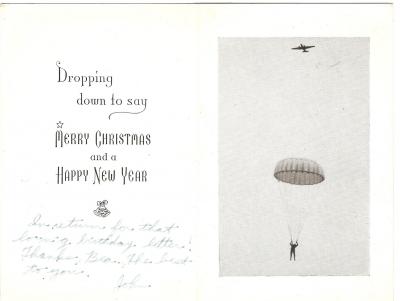 Dropping
down to say
MERRY CHRISTMAS
and a
HAPPY NEW YEAR
In return for that
loving birthday letter!
Thanks, Bea. The best
to you.
John